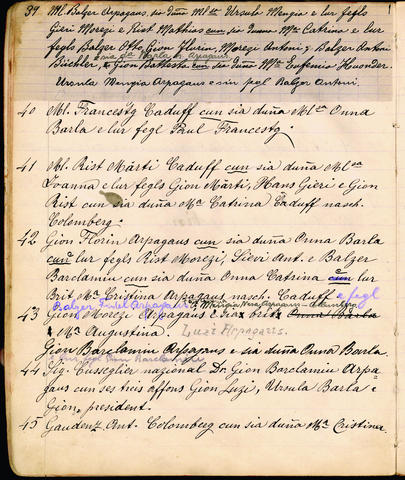 39 Ml. Balzer Arpagaus, sia duña Ml sa Ursula Mengia e lur fegls
Gieri Moregi e Rist Mathias cun sia duña Ma Catrina e lur
fegls Balzer Otto, Gion Glurin, Morezi Antoni, Balzer Antoni
Büchler, e Gion Mathesta cun sia duña Ma. Eufemia Huonder
Ursula Mengia Arpagaus e siu fegl Balzer Antoni.
40 Ml. Francestg Caduff cun sia duña Ml sa Onna
Barla e lur fegl Paul Francestg.
41 Ml. Rist Märti Caduff cun sia duña Ml sa
Ioanna e lur fegls Gion Märti, Hans Gieri e Gion
Rist cun sia duña Ma Catrina Caduff nasch.
Colemberg.
42 Gion Florin Arpagaus cun sia duña Onna Barla
cun lur fegls Rist Morezi, Sievi Ant. e Balzer
Barclamiu cun sia duña Onna Catrina cun lur
Brit Ma. Cristina Arpagaus nasch. Caduff e fegl
Balzer Fidel Arpagaus
43 Gion Morezi Arpagaus e sia brit Onna Barla
x Ma Augustina. Luzi Arpagaus.
Gion Barclamiu Arpagaus e sia duña Onna Barla.
44 Sig. Cusseglier nazional Dr. Gion Barclamiu Arpa
gaus cun ses treis affons Gion Luzi, Ursula Barla e
Gion, president.
45 Gaudenz Ant. Colemberg cun sia duña Ma Cristina